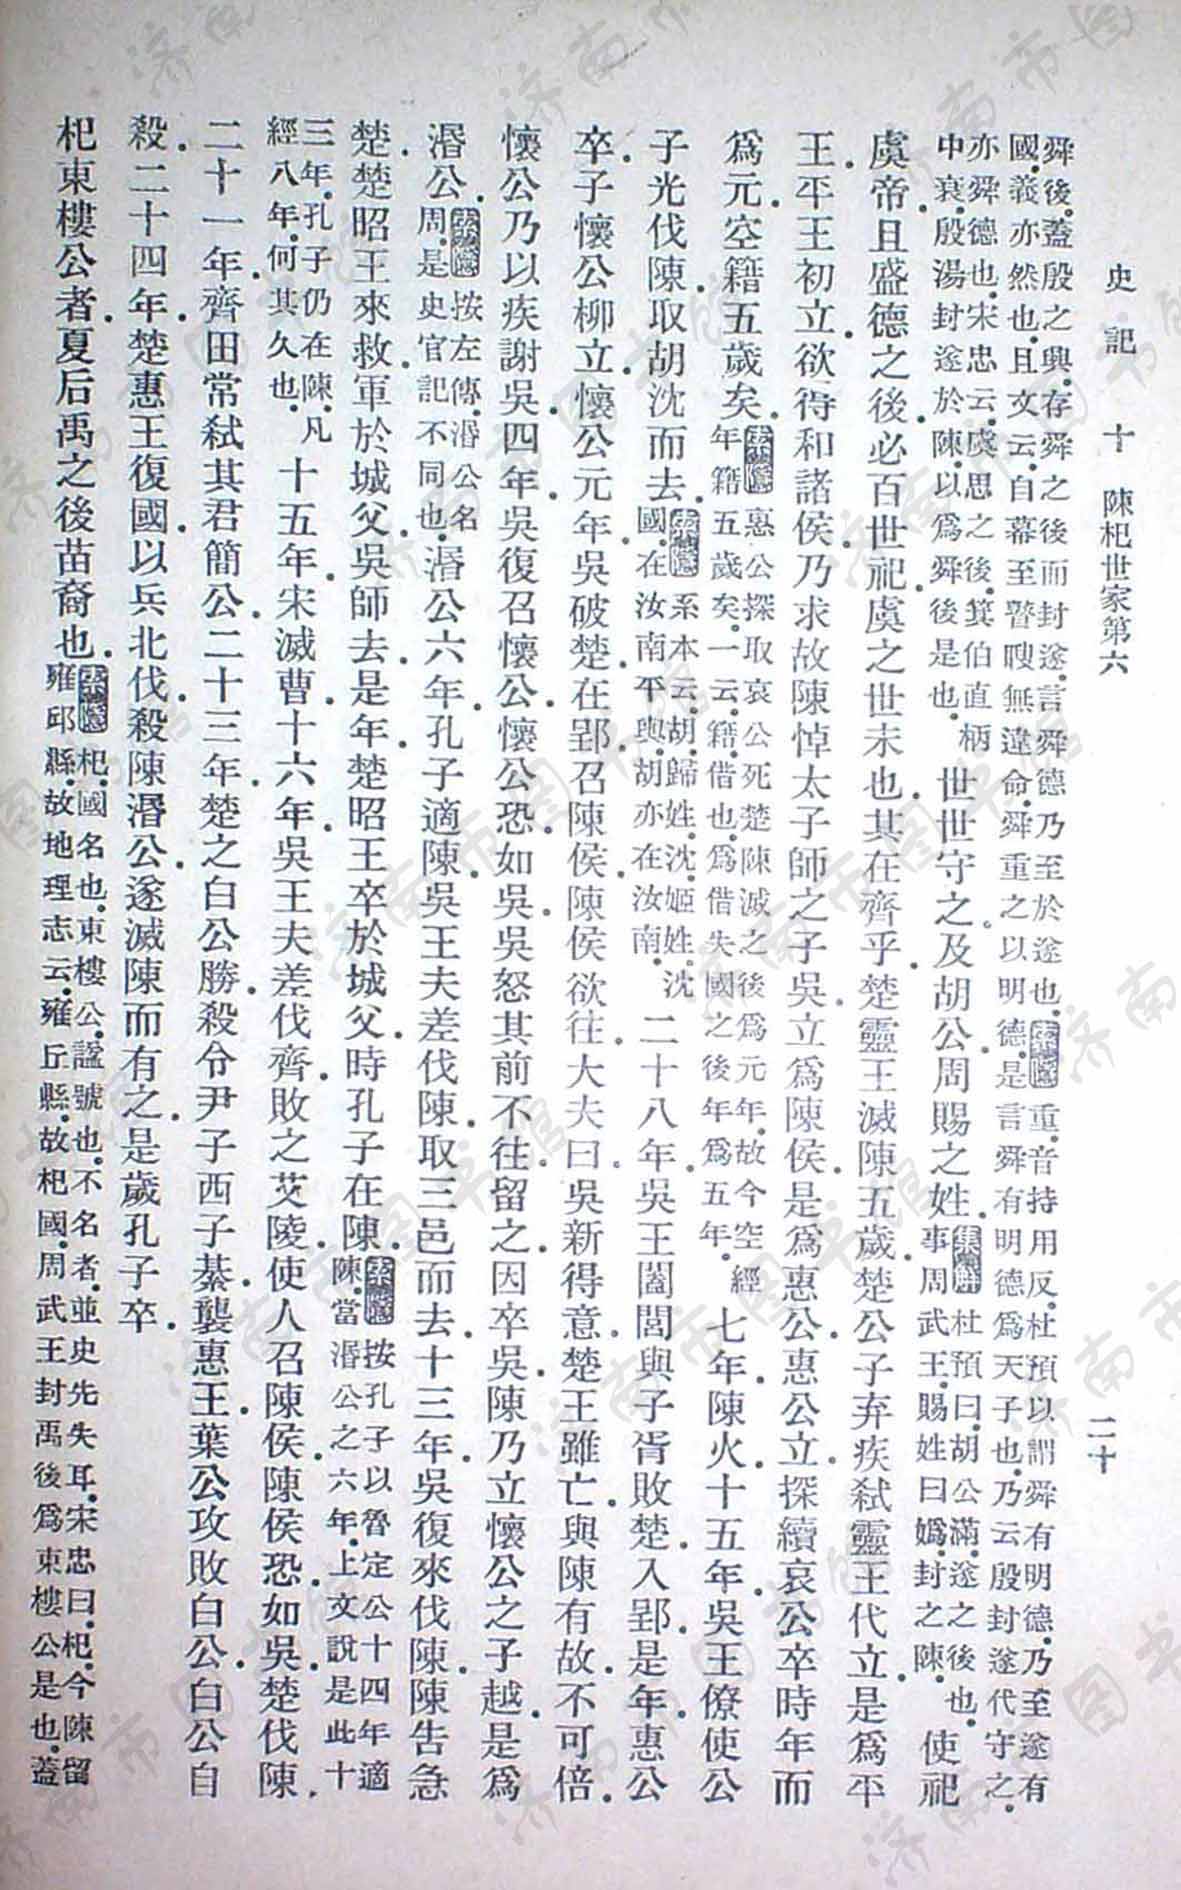 史記 十 陳杞世家第六 二十
舜後。蓋殷之興。存舜之後而封遂。言舜德乃至於遂也。索隱重音持用反。杜預以謂舜有明德。乃至遂有
國。義亦然也。且文云。自幕至瞽瞍無違命。舜重之以明德。是言舜有明德爲天子也。乃云殷封遂代守之。
亦舜德也。宋忠云。虞思之後。箕伯直柄
中衰。殷湯封遂於陳。以爲舜後。是也。
世世守之。及胡公。周賜之姓。集解杜預曰。胡公滿。遂之後也。
事周武王。賜姓曰嬀。封之陳。
使祀
虞帝。且盛德之後。必百世祀。虞之世未也。其在齊乎。楚靈王滅陳五歲。楚公子弃疾弒靈王代立。是爲平
王。平王初立。欲得和諸侯。乃求故陳悼太子師之子吳。立爲陳侯。是爲惠公。惠公立。探續哀公卒時年而
爲元。空籍五歲矣。索隱惠公探取哀公死楚陳滅之後爲元年。故今空經
年籍五歲矣。一云。籍。借也。爲借失國之後年爲五年。
七年。陳火。十五年。吳王僚使公
子光伐陳。取胡沈而去。索隱系本云。胡。歸姓。沈。姬姓。沈
國。在汝南平輿。胡亦在汝南。
二十八年。吳王闔閭與子胥敗楚。入郢。是年。惠公
卒。子懷公柳立。懷公元年。吳破楚。在郢。召陳侯。陳侯欲往。大夫曰。吳新得意。楚王雖亡。與陳有故。不可倍。
懷公乃以疾謝吳。四年。吳復召懷公。懷公恐。如吳。吳怒其前不往。留之。因卒吳。陳乃立懷公之子越。是爲
湣公。索隱按左傳。湣公名
周。是史官記不同也。
湣公六年。孔子適陳。吳王夫差伐陳。取三邑而去。十三年。吳復來伐陳。陳告急
楚。楚昭王來救。軍於城父。吳師去。是年。楚昭王卒於城父。時孔子在陳。索隱按孔子以魯定公十四年適
陳。當湣公之六年。上文說是。此十
三年。孔子仍在陳。凡
經八年。何其久也。
十五年。宋滅曹。十六年。吳王夫差伐齊。敗之艾陵。使人召陳侯。陳侯恐。如吳。楚伐陳。
二十一年。齊田常弒其君簡公。二十三年。楚之白公勝。殺令尹子西子綦。襲惠王。葉公攻敗白公。白公自
殺。二十四年。楚惠王復國。以兵北伐。殺陳湣公。遂滅陳而有之。是歲。孔子卒。
杞東樓公者。夏后禹之後苗裔也。索隱杞。國名也。東樓公。謚號也。不名者。並史先失耳。宋忠曰。杞。今陳留
雍邱縣。故地理志云。雍丘縣。故杞國。周武王封禹後爲東樓公是也。蓋